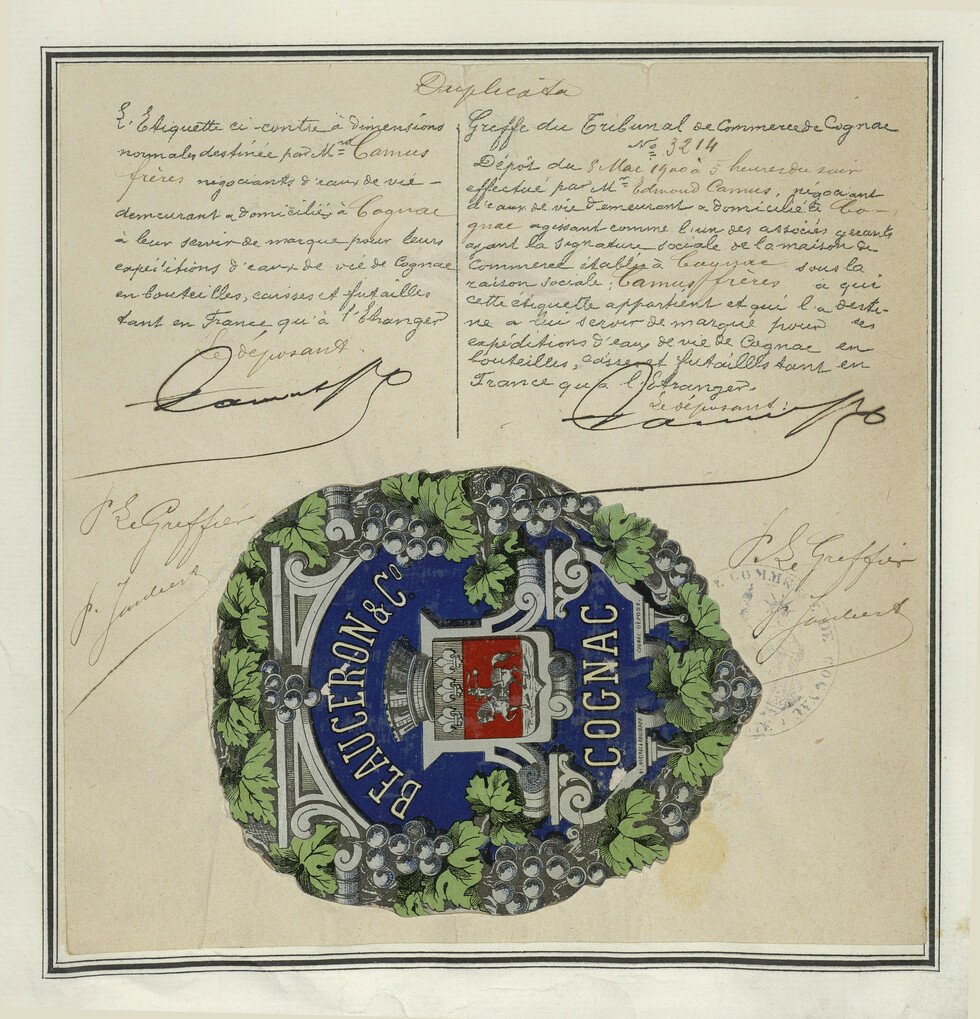 Duplicata
L'Etiquette ci-contre à dimensions
normales destinée par Mrs Camus
frères négociants d'eaux de vie –
demeurant & domiciliés à Cognac
à leur servir de marque pour leurs
expéditions d'eaux de vie de Cognac
en bouteilles, caisses et futailles
tant en France qu'à l'Etranger
Le déposant
Camus
P Le Greffier
p. Joubert
Greffe du Tribunal de Commerce de Cognac
No 3214
Dépôt du 8 Mai 1900 à 5 heures du soir
effectué par Mr Edmond Camus, négociant
d'eaux de vie demeurant & domicilié à Co-
gnac agissant comme l'un des associés gérants
ayant la signature sociale de la maison de
Commerce établie à Cognac sous la
raison sociale; Camus frères à qui
cette étiquette appartient et qui l'a desti-
né à lui servir de marque pour ses
expéditions d'eaux de vie de Cognac en
bouteilles, caisses et futailles tant en
France qu'à l'Etranger.
Le déposant:
Camus
P. Le Greffier
P Joubert
COMMERCE DE COGNAC
BEAUCERON & Co
COGNAC
COGNAC DÉPOSÉ